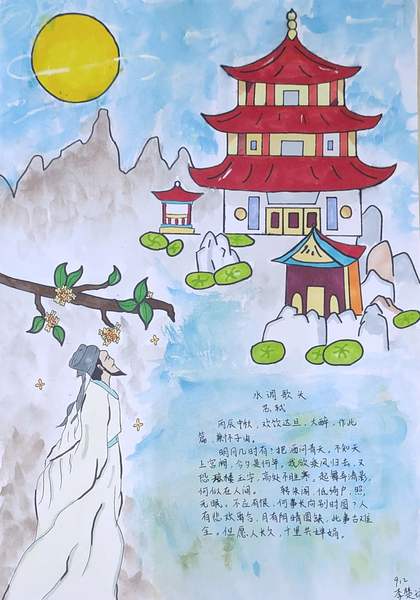 水调歌头
苏轼
丙辰中秋，欢饮达旦，大醉，作此
篇，兼怀子由。
明月几时有？把酒问青天。不知天
上宫阙，今夕是何年。我欲乘风归去，又
恐琼楼玉宇，高处不胜寒，起舞弄清影，
何似在人间。 转朱阁，低绮户，照
无眠。不应有恨，何事长向别时圆？人
有悲欢离合，月有阴晴圆缺，此事古难
全。但愿人长久，千里共婵娟。
9.12
李楚